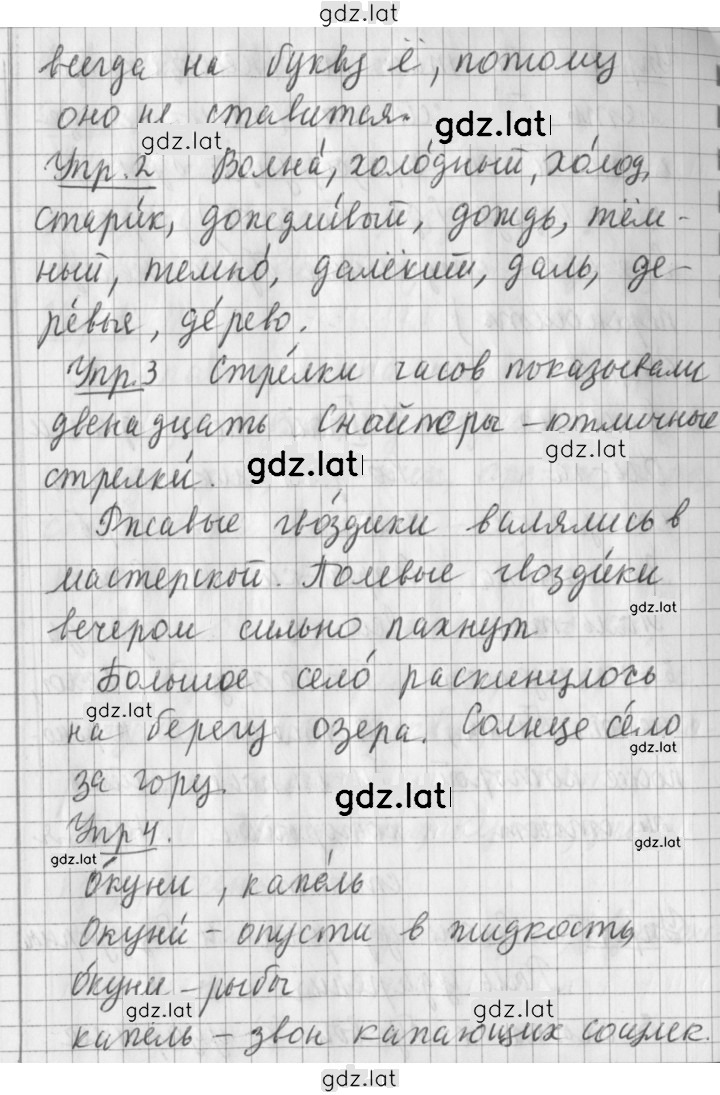 gdz.lat
всегда на букву ё, потому
оно не ставится.
gdz.lat
gdz.lat
Упр.2 Волна́, холо́дный, хо́лод,
стари́к, дождли́вый, дождь, тём-
ный, темно́, далёкий, даль, де-
ре́вья, де́рево.
Упр.3 Стре́лки часов показывали
двенадцать Снайперы – отличные
gdz.lat
gdz.lat
стрелки́.
Ржавые гво́здики валялись в
мастерской. Полевые гвозди́ки
gdz.lat
вечером сильно пахнут
Большое село́ раскинулось
gdz.lat
на берегу озера. Солнце се́ло
gdz.lat
за гору.
gdz.lat
Упр 4.
gdz.lat
gdz.lat
о́куни, капе́ль
Окуни́ – опусти в жидкость
о́куни – рыбы
gdz.lat
gdz.lat
капель – звон капающих сосулек.
gdz.lat